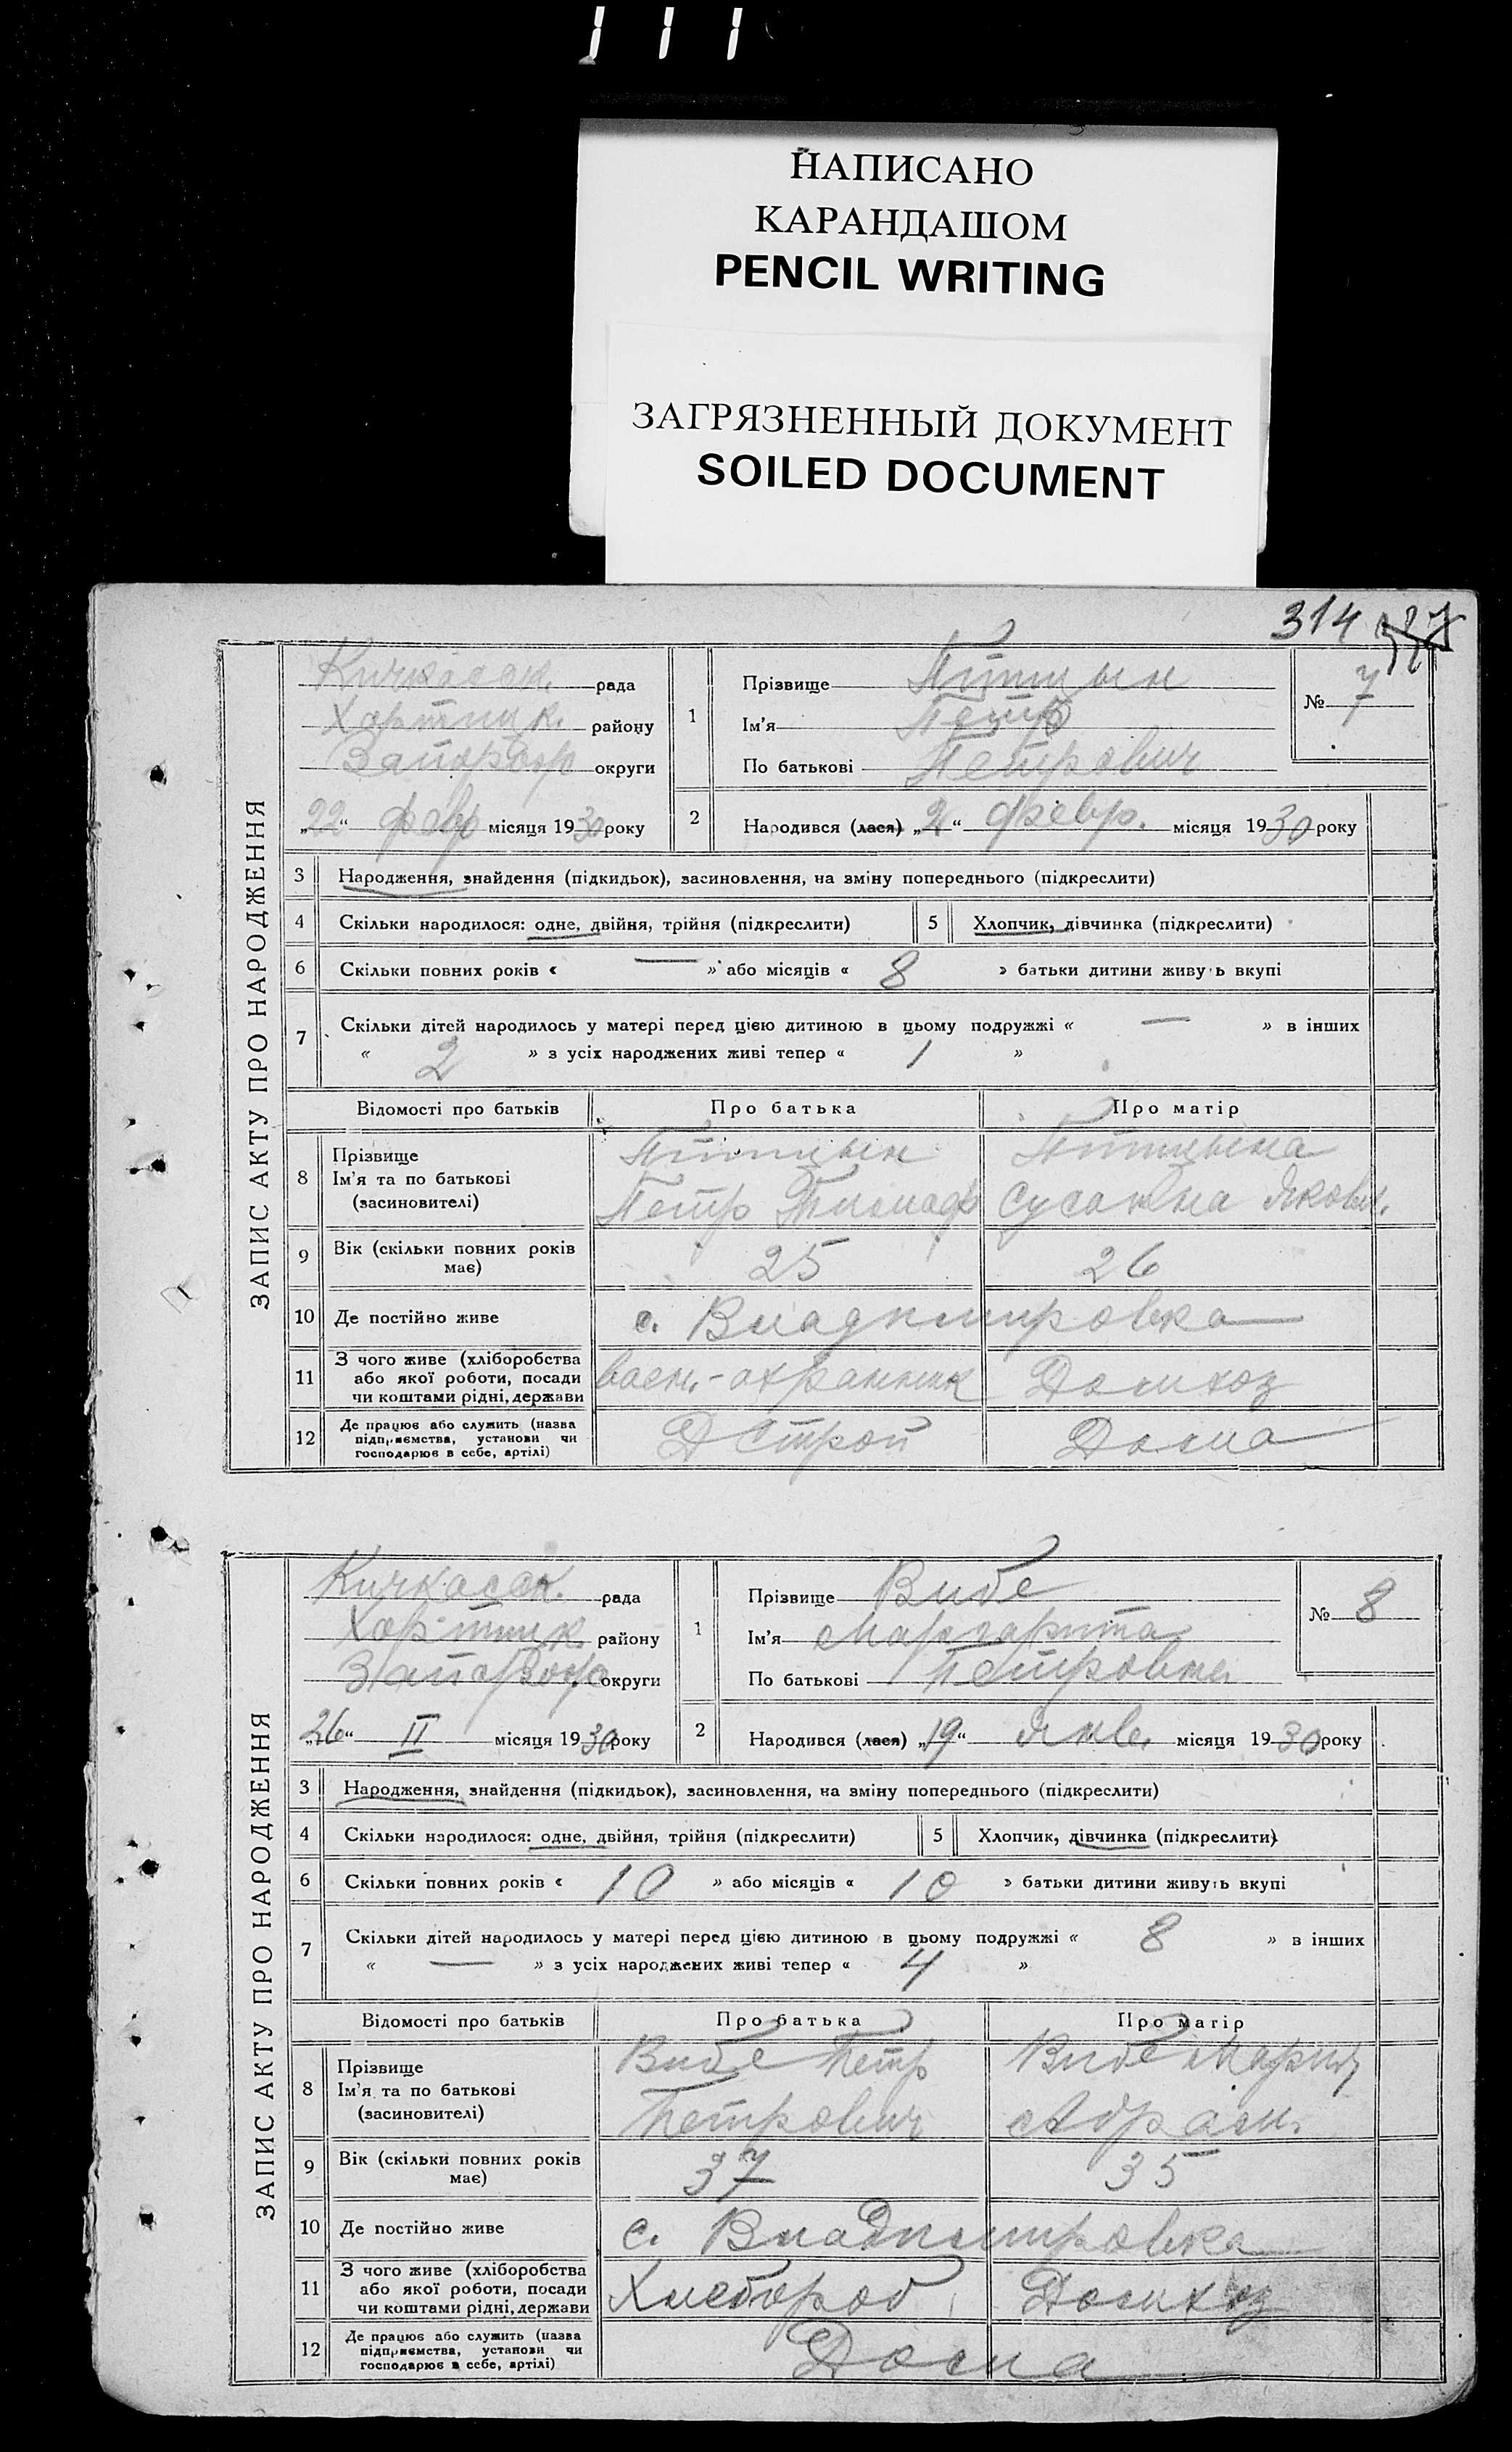 НАПИСАНО
КАРАНДАШОМ
PENCIL WRITING
ЗАГРЯЗНЕННЫЙ ДОКУМЕНТ
SOILED DOCUMENT
314
ЗАПИС АКТУ ПРО НАРОДЖЕННЯ
Кичкасск. рада
Хортицк. району
Запорож округи
„22“ февр місяця 1930 року
1 Прізвище Птицын
Ім'я Петр
По батькові Петрович
№ 7
2 Народився (лася) „2“ февр. місяця 1930 року
3 Народження, знайдення (підкидьок), засиновлення, на зміну попереднього (підкреслити)
4 Скільки народилося: одне, двійня, трійня (підкреслити) 5 Хлопчик, дівчинка (підкреслити)
6 Скільки повних років « — » або місяців « 8 » батьки дитини живуть вкупі
7 Скільки дітей народилось у матері перед цією дитиною в цьому подружжі « — » в інших
« 2 » з усіх народжених живі тепер « 1 »
Відомості про батьків Про батька Про матір
8 Прізвище
Ім'я та по батькові
(засиновителі)
Птицын Птицына
Петр Сусанна Яковл.
9 Вік (скільки повних років
має) 25 26
10 Де постійно живе с. Владимировка
11 З чого живе (хліборобства
або якої роботи, посади
чи коштами рідні, держави
воен.-охранник Домхоз
12 Де працює або служить (назва
підприємства, установи чи
господарює в себе, артілі)
ДСтрой Дома
ЗАПИС АКТУ ПРО НАРОДЖЕННЯ
Кичкасск. рада
Хортицк. району
Запорож округи
„26“ II місяця 1930 року
1 Прізвище Вибе
Ім'я Маргарита
По батькові Петровна
№ 8
2 Народився (лася) „19“ янв. місяця 1930 року
3 Народження, знайдення (підкидьок), засиновлення, на зміну попереднього (підкреслити)
4 Скільки народилося: одне, двійня, трійня (підкреслити) 5 Хлопчик, дівчинка (підкреслити)
6 Скільки повних років « 10 » або місяців « 10 » батьки дитини живуть вкупі
7 Скільки дітей народилось у матері перед цією дитиною в цьому подружжі « 8 » в інших
« — » з усіх народжених живі тепер « 4 »
Відомості про батьків Про батька Про матір
8 Прізвище
Ім'я та по батькові
(засиновителі)
Вибе Петр Вибе Мария
Петрович Абрам.
9 Вік (скільки повних років
має) 37 35
10 Де постійно живе с. Владимировка
11 З чого живе (хліборобства
або якої роботи, посади
чи коштами рідні, держави
Хлебороб Домхоз
12 Де працює або служить (назва
підприємства, установи чи
господарює в себе, артілі)
Дома